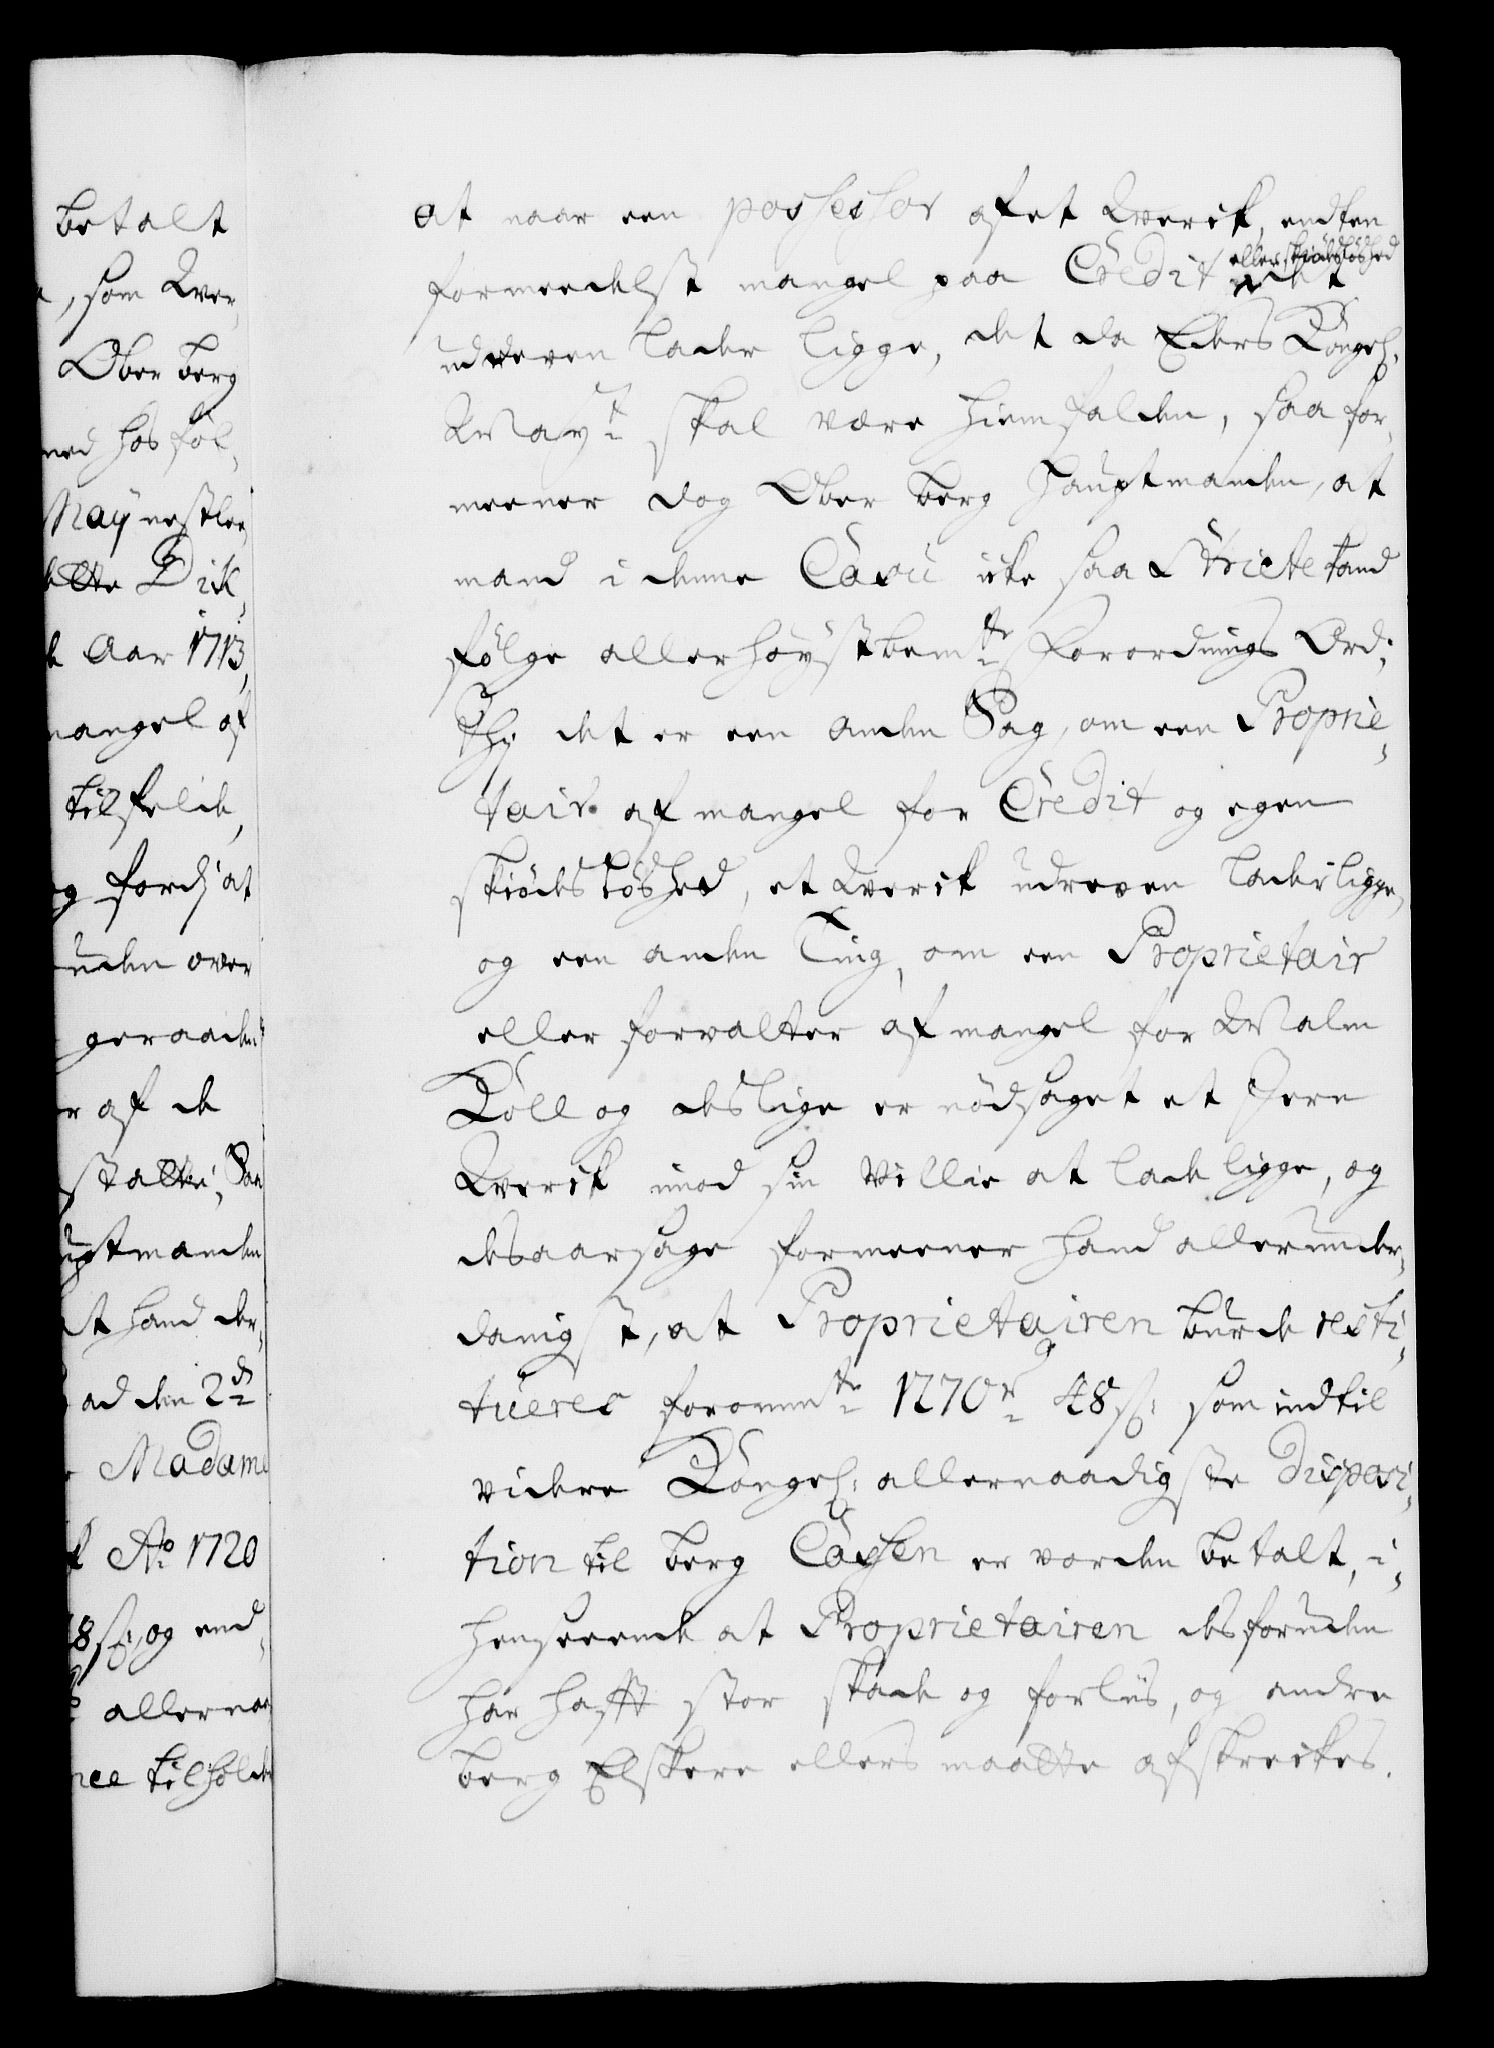 betalt
, som Wer,
Ober berg
med hos föl,
May nestlee
dette Dirk,
de Aar 1713,
mangel af
tilfelde,
og fordj at
unden over
geraaden
r af de
stalte, Saa
uptmanden
at hand der,
ad den 2de
Madame
Ao 1720
8 s: og end,
allernaa
nee tilholde
at naar een possessor af et Werck, endten
formeedelst mangel paa Credit eller skiödeslöshed det
udreven lader ligge, det da Eders Kongel.
Mayt skal være hiemfalden, saa for,
meener dog Ober berg Hauptmanden, at
mand i denne Casu icke saa Stricte kand
fölge allerhöystbemte Forordnings Ord;
Thj det er een anden Sag, om een Proprie,
tair af mangel for Credit og egen
skiödeslöshed, et Werck udreven lader ligge,
og een anden Ting, om een Proprietair
eller forvalter af mangel for Malm
Köll og deslige er nödsaget et Jern
Werck imod sin Villie at lade ligge, og
desaarsage formeener hand allerunder,
danigst, at Proprietairen burde resti,
tueres forommte 1270 r 48 s: som indtil
videre Kongel: allernaadigste Disposi,
tion til berg Cassen er vorden betalt, i,
henseende at Proprietairen desforuden
har hafft stor skade og forlis, og andre
berg Elskere ellers maatte afskreckes.